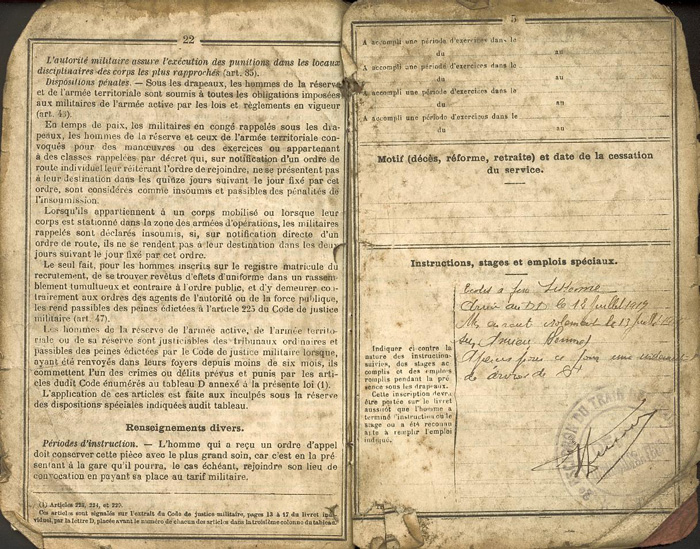 22
L'autorité militaire assure l'exécution des punitions dans les locaux
disciplinaires des corps les plus rapprochés (art. 35).
Dispositions pénales. — Sous les drapeaux, les hommes de la réserve
et de l'armée territoriale sont soumis à toutes les obligations imposées
aux militaires de l'armée active par les lois et règlements en vigueur
(art. 43).
En temps de paix, les militaires en congé rappelés sous les dra-
peaux, les hommes de la réserve et ceux de l'armée territoriale con-
voqués pour des manœuvres ou des exercices ou appartenant
à des classes rappelées par décret qui, sur notification d'un ordre de
route individuel leur réitérant l'ordre de rejoindre, ne se présentent pas
à leur destination dans les quinze jours suivant le jour fixé par cet
ordre, sont considérés comme insoumis et passibles des pénalités de
l'insoumission.
Lorsqu'ils appartiennent à un corps mobilisé ou lorsque leur
corps est stationné dans la zone des armées d'opérations, les militaires
rappelés sont déclarés insoumis, si, sur notification directe d'un
ordre de route, ils ne se rendent pas à leur destination dans les deux
jours suivant le jour fixé par cet ordre.
Le seul fait, pour les hommes inscrits sur le registre matricule du
recrutement, de se trouver revêtus d'effets d'uniforme dans un rassem-
blement tumultueux et contraire à l'ordre public, et d'y demeurer con-
trairement aux ordres des agents de l'autorité ou de la force publique,
les rend passibles des peines édictées à l'article 225 du Code de justice
militaire (art. 47).
Les hommes de la réserve de l'armée active, de l'armée territo-
riale ou de sa réserve sont justiciables des tribunaux ordinaires et
passibles des peines édictées par le Code de justice militaire lorsque,
ayant été renvoyés dans leurs foyers depuis moins de six mois, ils
commettent l'un des crimes ou délits prévus et punis par les arti-
cles dudit Code énumérés au tableau D annexé à la présente loi (1).
L'application de ces articles est faite aux inculpés sous la réserve
des dispositions spéciales indiquées audit tableau.
Renseignements divers.
Périodes d'instruction. — L'homme qui a reçu un ordre d'appel
doit conserver cette pièce avec le plus grand soin, car c'est en la pré-
sentant à la gare qu'il pourra, le cas échéant, rejoindre son lieu de
convocation en payant sa place au tarif militaire.
(1) Articles 223, 224, et 229.
Ces articles sont signalés sur l'extrait du Code de justice militaire, pages 13 à 17 du livret indi-
viduel, par la lettre D, placée avant le numéro de chacun des articles dans la troisième colonne du tableau.
5
A accompli une période d'exercices dans le
du au
A accompli une période d'exercices dans le
du au
A accompli une période d'exercices dans le
du au
A accompli une période d'exercices dans le
du au
Motif (décès, réforme, retraite) et date de la cessation
du service.
Instructions, stages et emplois spéciaux.
Indiquer ci-contre la
nature des instruction
suivies, des stages ac-
complis et des emplois
remplis pendant la pré-
sence sous les drapeaux.
Cette inscription devra
être portée sur le livret
aussitôt que l'homme a
terminé l'instruction ou
stage ou a été reconnu
apte à remplir l'emploi
indiqué.
juillet 1919
le 13 juillet